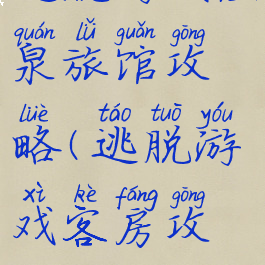 quán lǚ guǎn gōng
泉旅馆攻
lüè táo tuō yóu
略(逃脱游
xì kè fáng gōng
戏客房攻